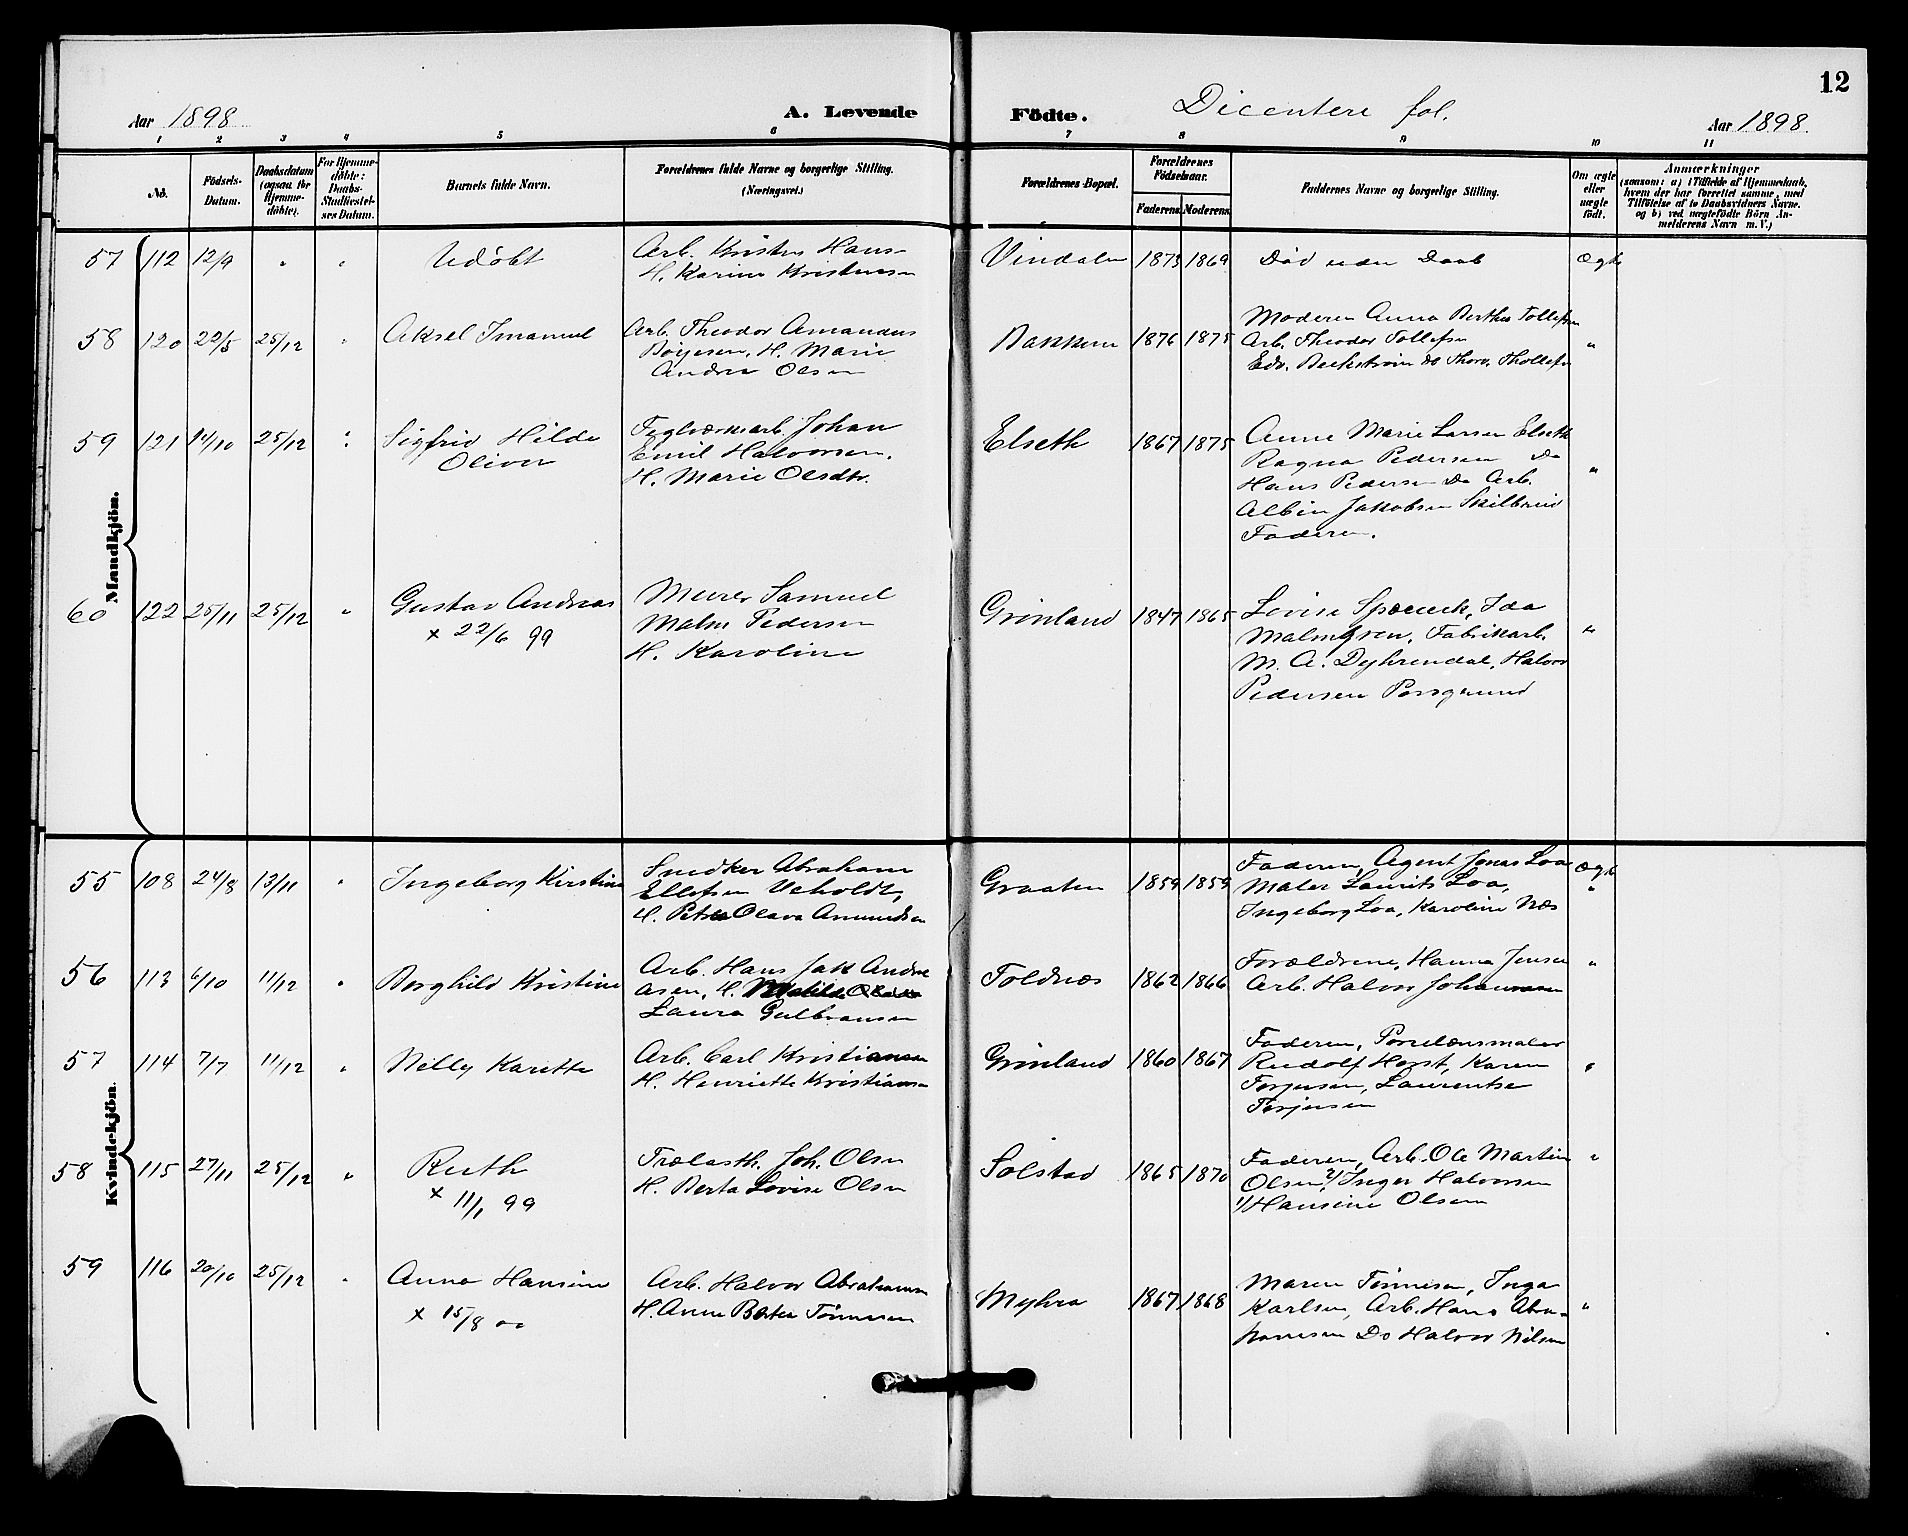 12
Aar 1898
A. Levende
Födte.
Dicentere fol.
Aar 1898.
1 2 3 4 5 6 7 8 9 10 11
No.
Födsels-Datum.
Daabsdatum (ogsaa for Hjemmedöbte).
For Hjemmedöbte: Daabs-Stadfæstelses Datum.
Barnets fulde Navn.
Forældrenes fulde Navne og borgerlige Stilling.
(Næringsvei.)
Forældrenes Bopæl.
Forældrenes Födselsaar.
Faderens Moderens
Faddernes Navne og borgerlige Stilling.
Om ægte eller uægte födt.
Anmærkninger
(saasom: a) i Tilfælde af Hjemmedaab,
hvem der har forrettet samme, med
Tilföielse af to Daabsvidners Navne,
og b) ved uægtefödte Börn Anmelderens Navn m. V.)
Mandkjön.
57 112 12/9 " " Udöbt
Arb. Kristen Hans-
H. Karine Kristensen
Vindalen 1873 1869 Död uden Daab Ægte
58 120 22/5 25/12 " Aksel Imanuel
Arb. Theodor Amandus
Börjesen, H. Marie
Andrea Olsen
Bakken 1876 1875
Moderen Anna Berthea Tollefsen
Arb. Theodor Tollefsen
Edv. Beckström Do Thorv. Thollefsen
"
59 121 14/10 25/12 " Sigfrid Hilde
Oliver
Teglværksarb. Johan
Emil Halvorsen.
H. Marie Olsdtr.
Elseth 1867 1875
Anne Marie Larsen Elseth
Ragna Pedersen Do
Hans Pedersen Do Arb.
Albin Jakobsen Skilbred
Faderen.
"
60 122 25/11 25/12 " Gustav Andreas
x 22/6 99
Murer Samuel
Malm Pedersen
H. Karoline
Grönland 1847 1865
Lovise, Ida
Malmgren, Fabrikarb.
M. A. Dyhrendal, Halvor
Pedersen Porsgrund
"
Kvindekjön.
55 108 24/8 13/11 " Ingeborg Kirstine
Snedker Abraham
Ellefsen Ueholdt,
H. Petra Olava Amundsen
Graaten 1859 1859
Faderen, Agent Jonas Loa
Maler Laurits Loa,
Ingeborg Loa, Karoline Næs
Ægte
"
56 113 6/10 11/12 " Borghild Kristine
Arb. Hans Jak Andre
asen, H.
Laura Gulbransen
Foldnæs 1862 1866
Forældrene, Hanna Jensen
Arb. Halvor Johannesen
"
57 114 7/7 11/12 " Nelly Karette
Arb. Carl Kristiansen
H. Henriette Kristiansen
Grönland 1860 1867
Faderen, Porcelænsmaler
Rudolf Horst, Karen
Torjusen, Laurentse
Torjusen
"
58 115 27/11 25/12 " Ruth
x 11/1 99
Trælasth. Joh. Olsen
H. Berta Lovise Olsen
Solstad 1865 1870
Faderen, Arb. Ole Martin
Olsen, 2/ Inger Halvorsen
1/ Hansine Olsen
"
59 116 20/10 25/12 " Anna Hansine
x 15/8 00
Arb. Halvor Abrahamsen
H. Anne Bertea Tönnesen
Myhra 1867 1868
Maren Tönnesen, Inga
Karlsen, Arb. Hans Abra-
hamsen Do Halvor Nilsen
"